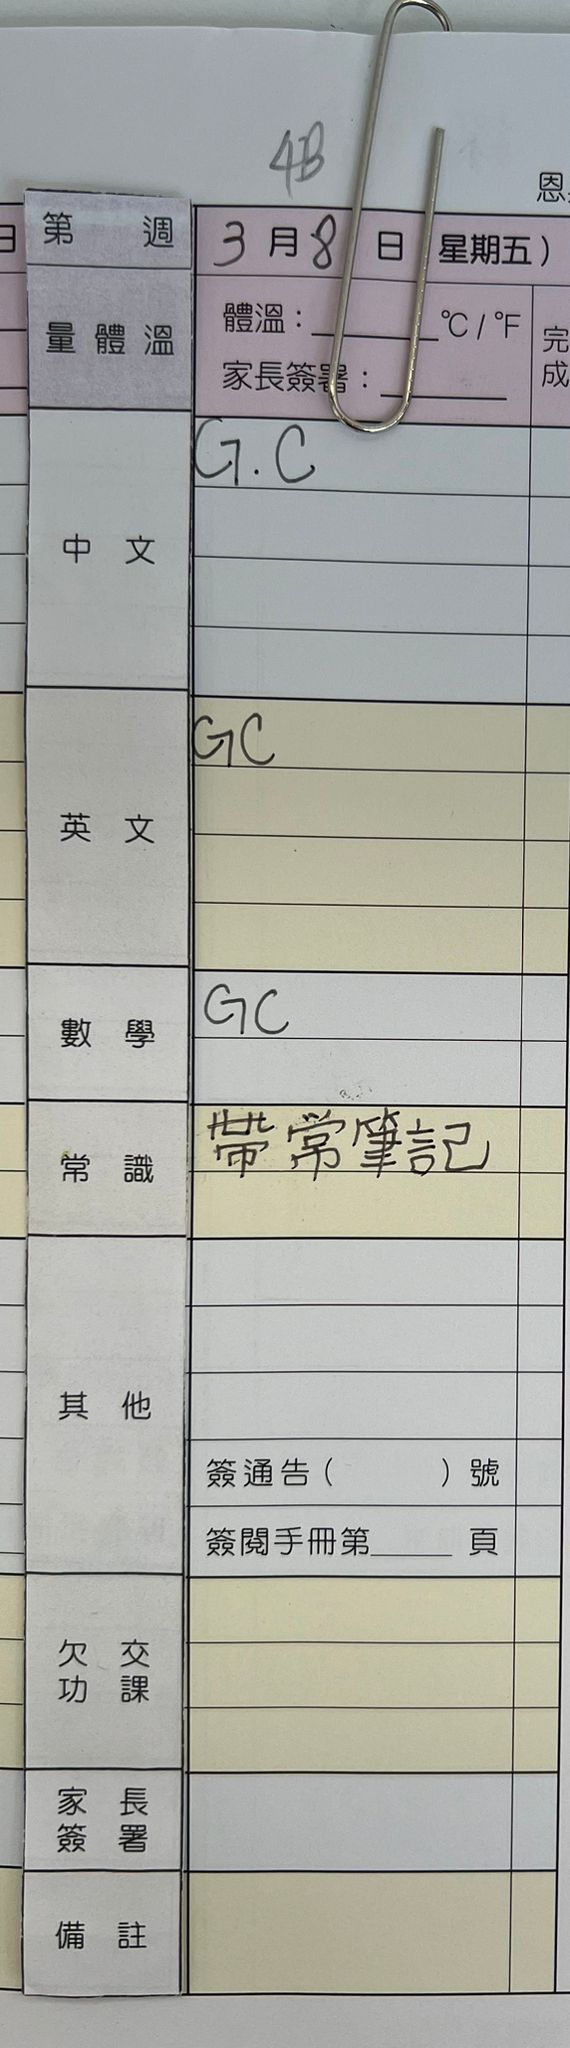 4B
恩
日 第 週 3月8日(星期五)
量體溫 體溫：＿＿＿°C/°F
家長簽署：＿＿＿ 完成
中文 G.C
英文 GC
數學 GC
常識 帶常筆記
其他
簽通告( )號
簽閱手冊第＿＿＿頁
欠交功課
家長簽署
備註